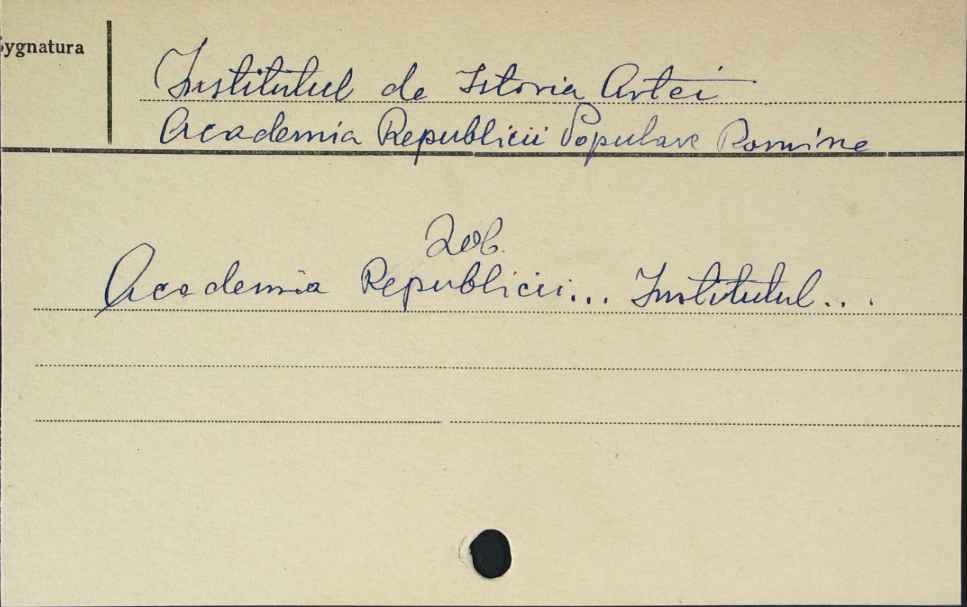 Sygnatura
Institutul de Istoria Artei
Academia Republicii Populare Romîne
Zob.
Academia Republicii... Institutul...